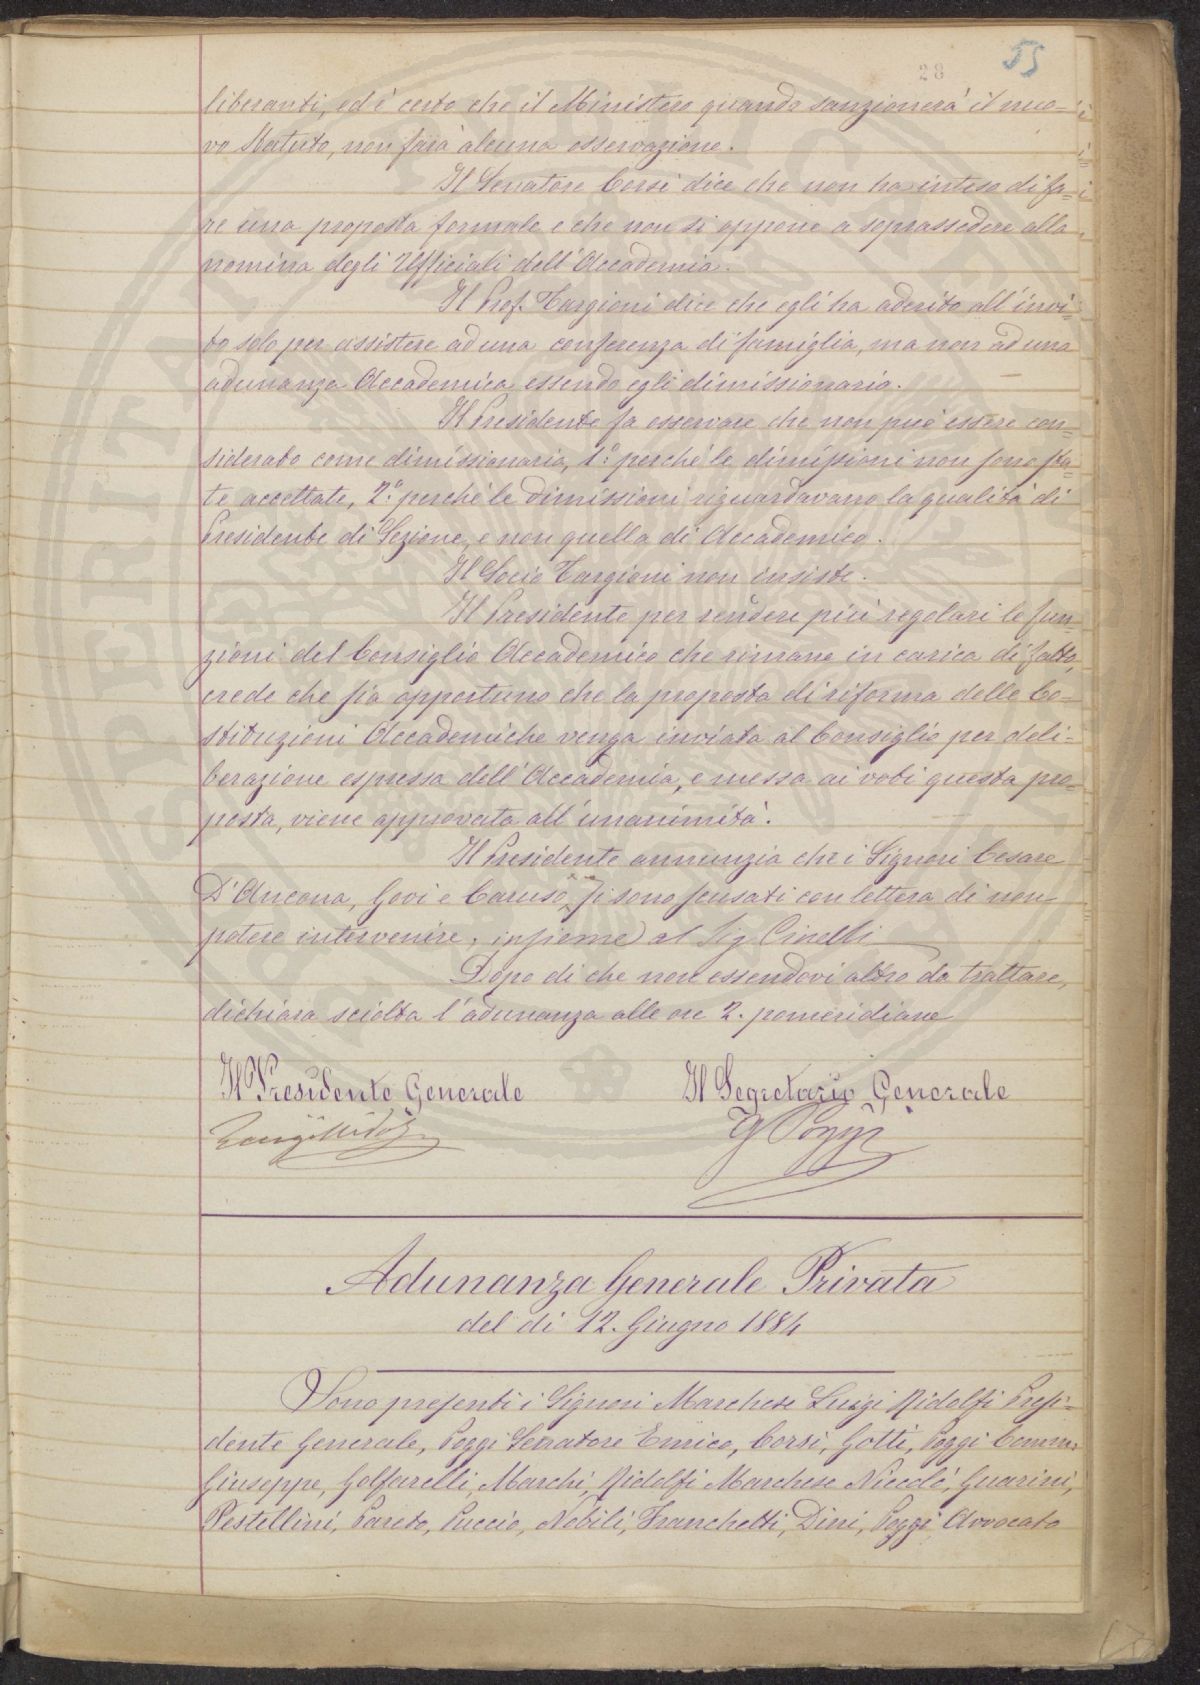 28 55
liberanti, ed è certo che il Ministero quando sanzionerà il nuo-
vo Statuto, non farà alcuna osservazione.
Il Senatore Corsi dice che non ha inteso di fa=
re una proposta formale e che non si oppone a soprassedere alla
nomina degli Ufficiali dell'Accademia.
Il Prof. Targioni dice che egli ha aderito all'invi=
to solo per assistere ad una conferenza di famiglia, ma non ad una
adunanza Accademica essendo egli dimissionario.
Il Presidente fa osservare che non può essere con=
siderato come dimissionario, 1.° perchè le dimissioni non sono sta=
te accettate, 2.° perchè le dimissioni riguardavano la qualità di
Presidente di Sezione, e non quella di Accademico.
Il Socio Targioni non insiste.
Il Presidente per rendere più regolari le fun=
zioni del Consiglio Accademico che rimane in carica di fatto,
crede che sia opportuno che la proposta di riforma delle Co=
stituzioni Accademiche venga inviata al Consiglio per deli=
berazione espressa dell'Accademia, e messa ai voti questa pro=
posta, viene approvata all'unanimità.
Il Presidente annunzia che i Signori Cesare
D'Ancona, Govi e Caruso, si sono scusati con lettera di non
potere intervenire, insieme al Sig Cinelli
Dopo di che non essendovi altro da trattare,
dichiara sciolta l'adunanza alle ore 2. pomeridiane
Il Presidente Generale Il Segretario Generale
G Poggi
Adunanza Generale Privata
del dì 12. Giugno 1884
Sono presenti i Signori Marchese Luigi Ridolfi Presi=
dente Generale, Poggi Senatore Enrico, Corsi, Gotti, Poggi Comm:
Giuseppe, Golfarelli, Marchi, Ridolfi Marchese Niccolò, Guarini,
Pestellini, Pareto, Puccio, Nobili, Franchetti, Dini, Poggi Avvocato